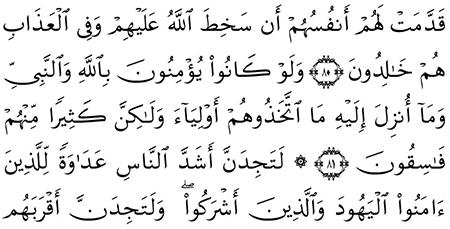 قَدَّمَتْ لَهُمْ أَنفُسُهُمْ أَن سَخِطَ ٱللَّهُ عَلَيْهِمْ وَفِى ٱلْعَذَابِ
هُمْ خَـٰلِدُونَ ٨٠ وَلَوْ كَانُوا۟ يُؤْمِنُونَ بِٱللَّهِ وَٱلنَّبِىِّ
وَمَآ أُنزِلَ إِلَيْهِ مَا ٱتَّخَذُوهُمْ أَوْلِيَآءَ وَلَـٰكِنَّ كَثِيرًا مِّنْهُمْ
فَـٰسِقُونَ ٨١ ۞ لَتَجِدَنَّ أَشَدَّ ٱلنَّاسِ عَدَٰوَةً لِّلَّذِينَ
ءَامَنُوا۟ ٱلْيَهُودَ وَٱلَّذِينَ أَشْرَكُوا۟ ۖ وَلَتَجِدَنَّ أَقْرَبَهُم